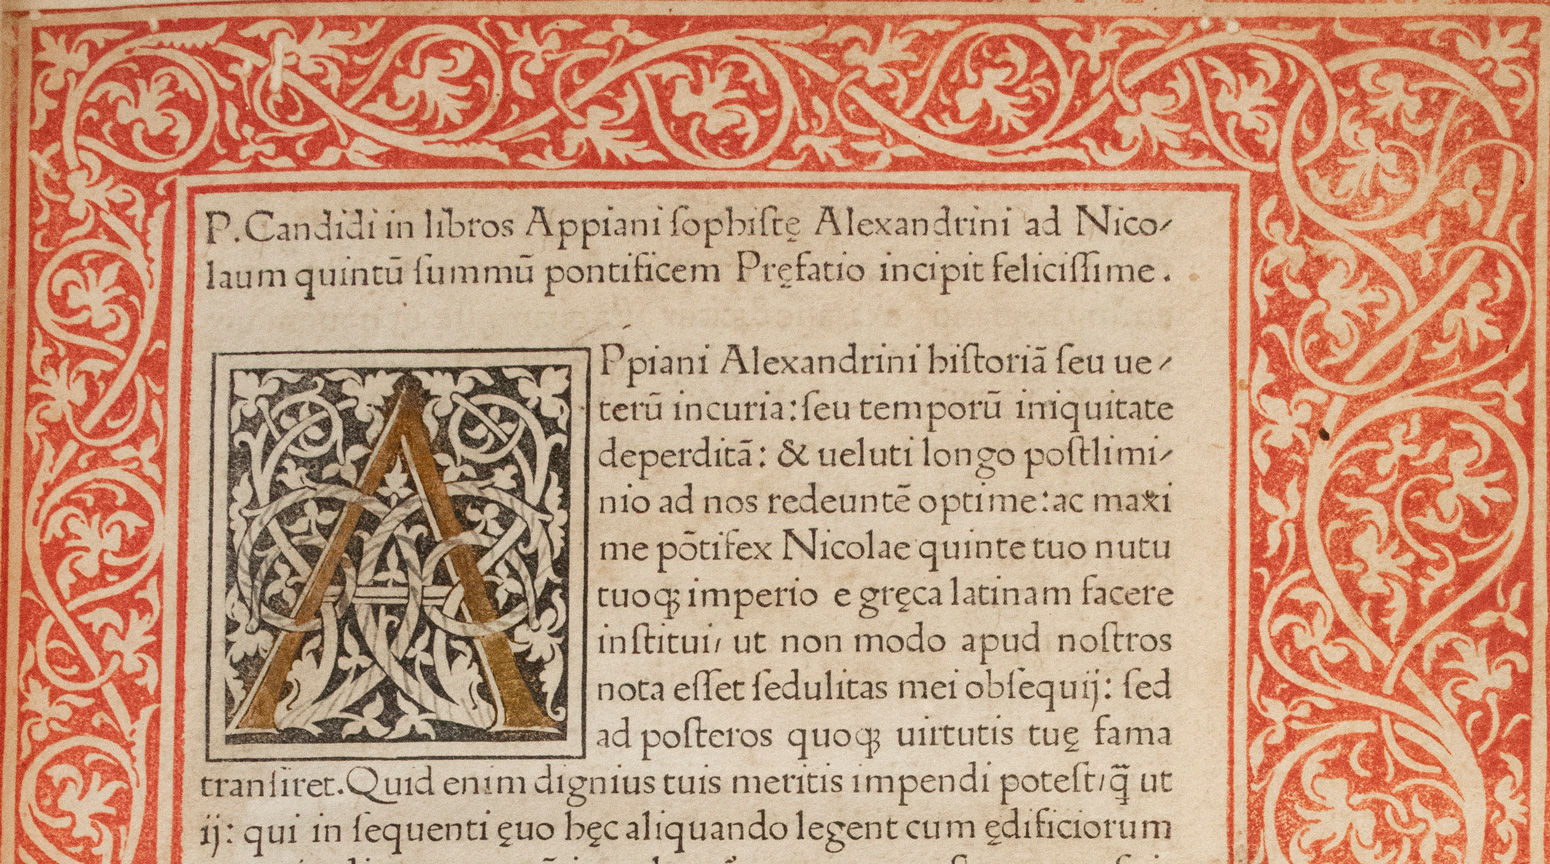 P.Candidi in libros Appiani ſophiſtę Alexandrini ad Nico⸗
laum quintū ſummū pontificem Pręfatio incipit feliciſſime.
APpiani Alexandrini hiſtoriā ſeu ue⸗
terū incuria: ſeu temporū iniquitate
deperditā: & ueluti longo poſtlimi⸗
nio ad nos redeuntē optime: ac maxi
me pōtifex Nicolae quinte tuo nutu
tuoqꝫ imperio e gręca latinam facere
inſtitui/ ut non modo apud noſtros
nota eſſet ſedulitas mei obſequij: ſed
ad poſteros quoqꝫ uirtutis tuę fama
tranſiret. Quid enim dignius tuis meritis impendi poteſt/ q̄ ut
ij: qui in ſequenti ęuo hęc aliquando legent cum ędificiorum